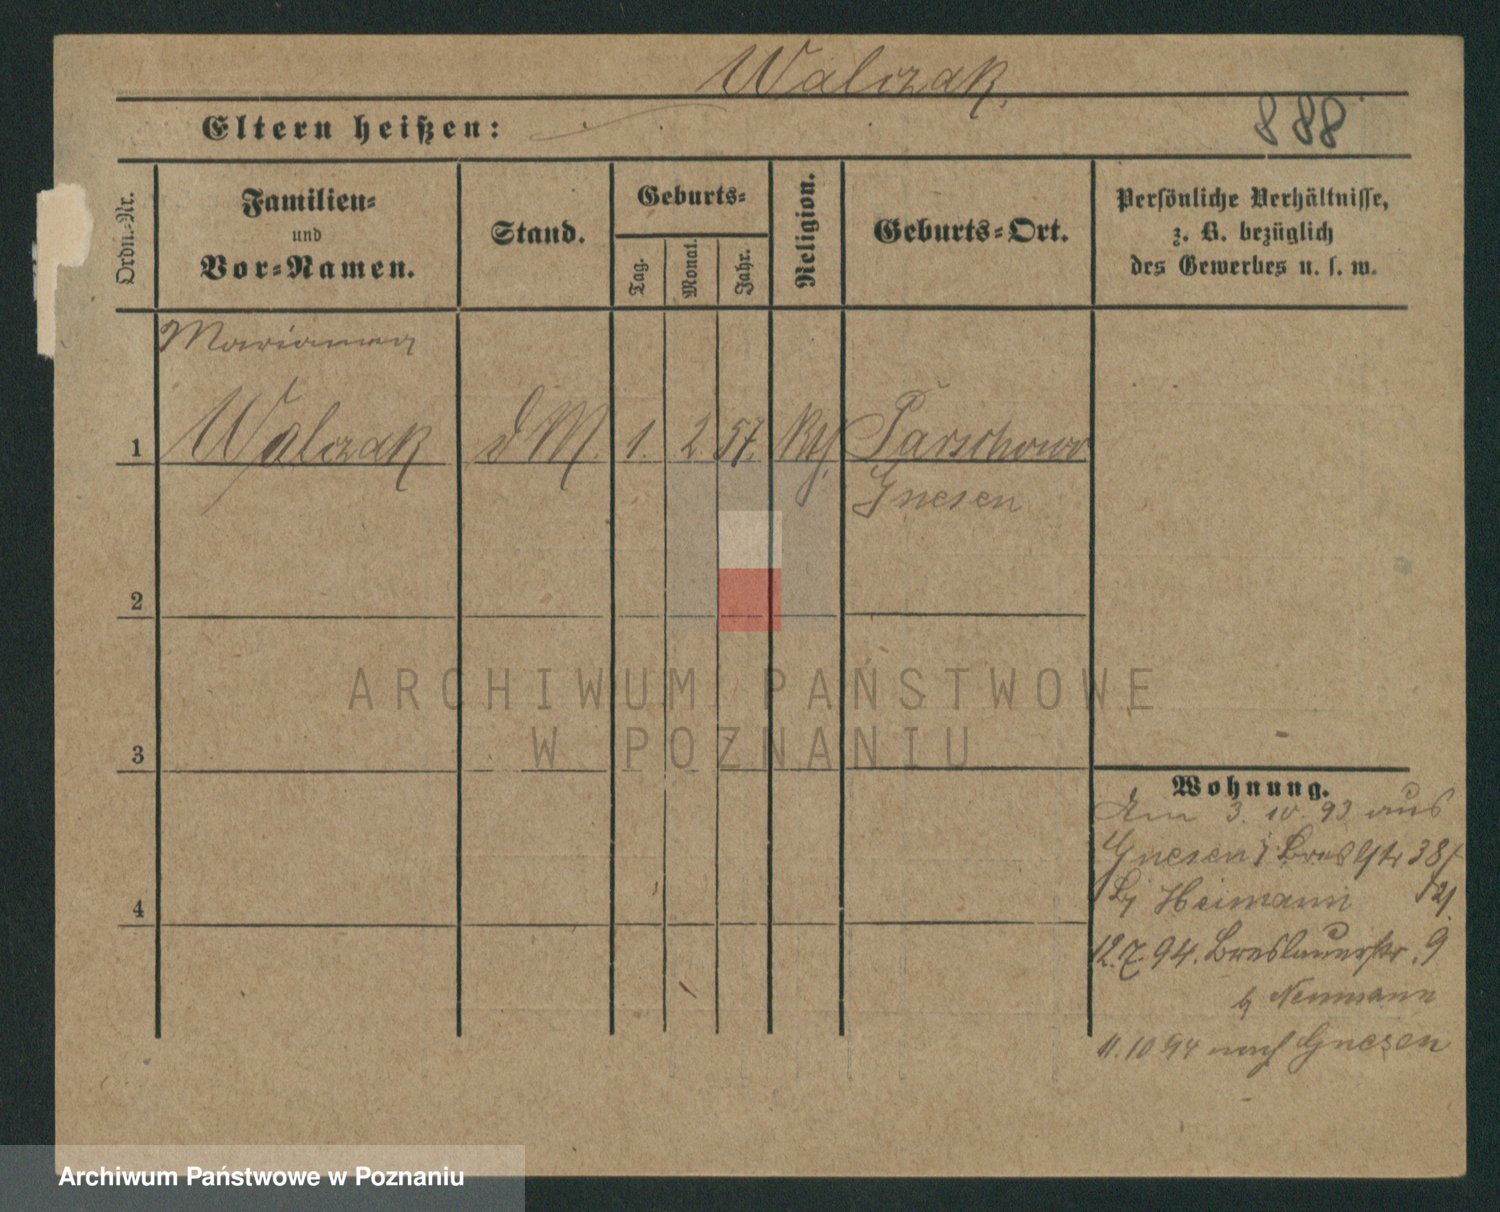 Walczak.
888
Eltern heißen:
Ordn.-Nr.
Familien-
und
Vor-Namen.
Stand.
Geburts-
Tag.
Monat.
Jahr.
Religion.
Geburts-Ort.
Persönliche Verhältnisse,
z. B. bezüglich
des Gewerbes u. s. w.
Marianna
1 Walczak d M. 1. 2. 57. Kth. Parschowo
Gnesen
2
3
4
Wohnung.
Am 3. 10. 93 aus
Gnesen Bresl Str 38/
Heimann 21
12.7.94. Breslauerstr. 9
Neumann
11.10 94 nach Gnesen
ARCHIWUM PAŃSTWOWE
W POZNANIU
Archiwum Państwowe w Poznaniu